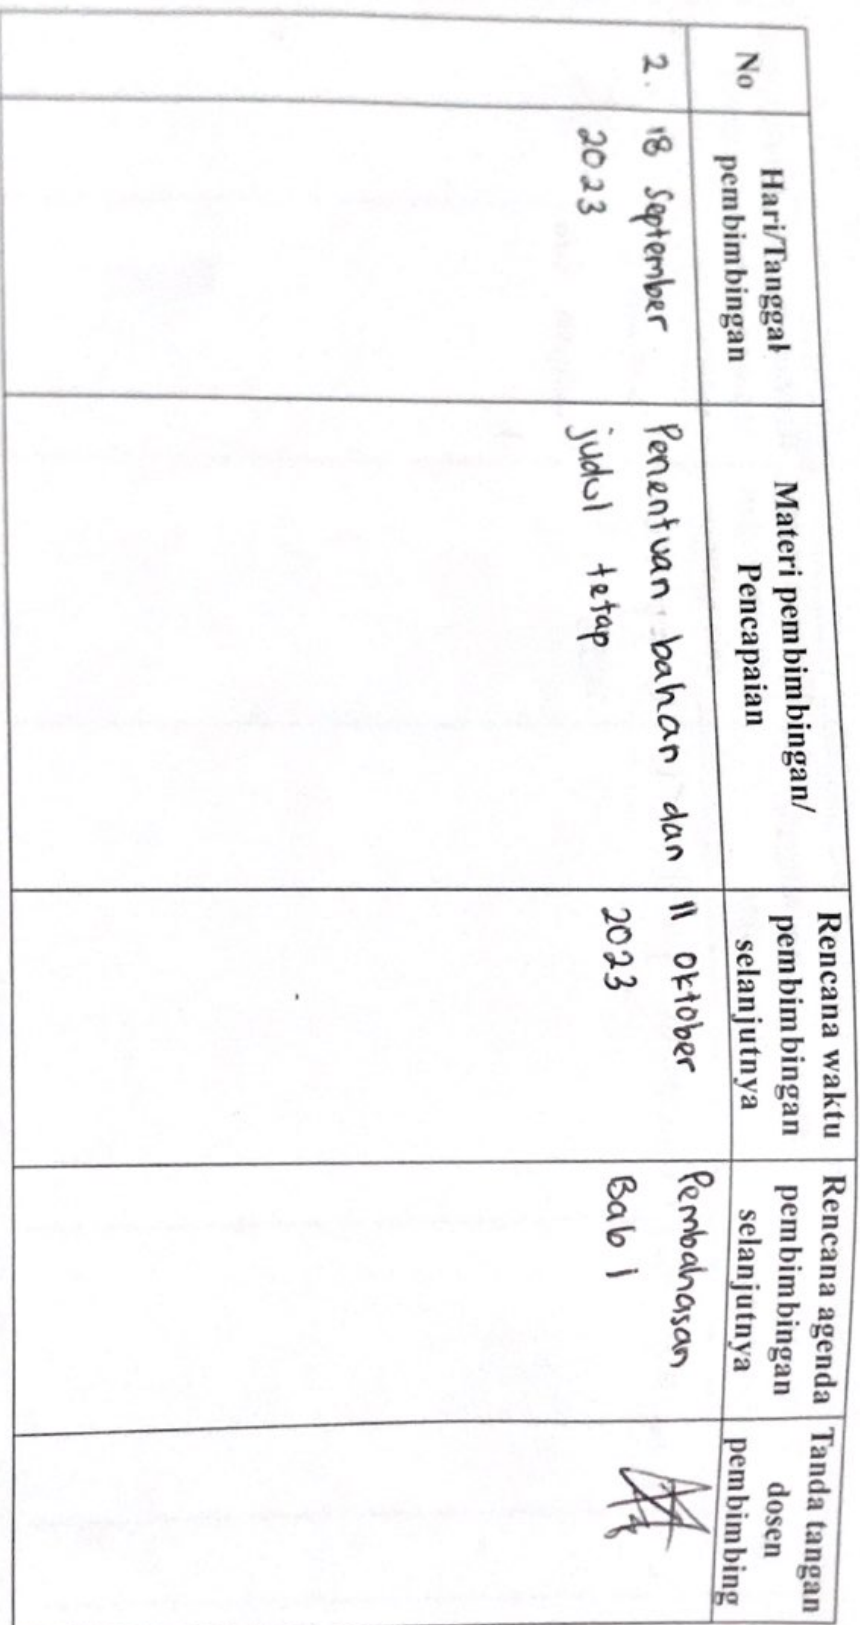 No
Hari/Tanggal
pembimbingan
Materi pembimbingan/
Pencapaian
Rencana waktu
pembimbingan
selanjutnya
Rencana agenda
pembimbingan
selanjutnya
Tanda tangan
dosen
pembimbing
2.
18 September
2023
Penentuan bahan dan
judul tetap
11 Oktober
2023
Pembahasan
Bab 1